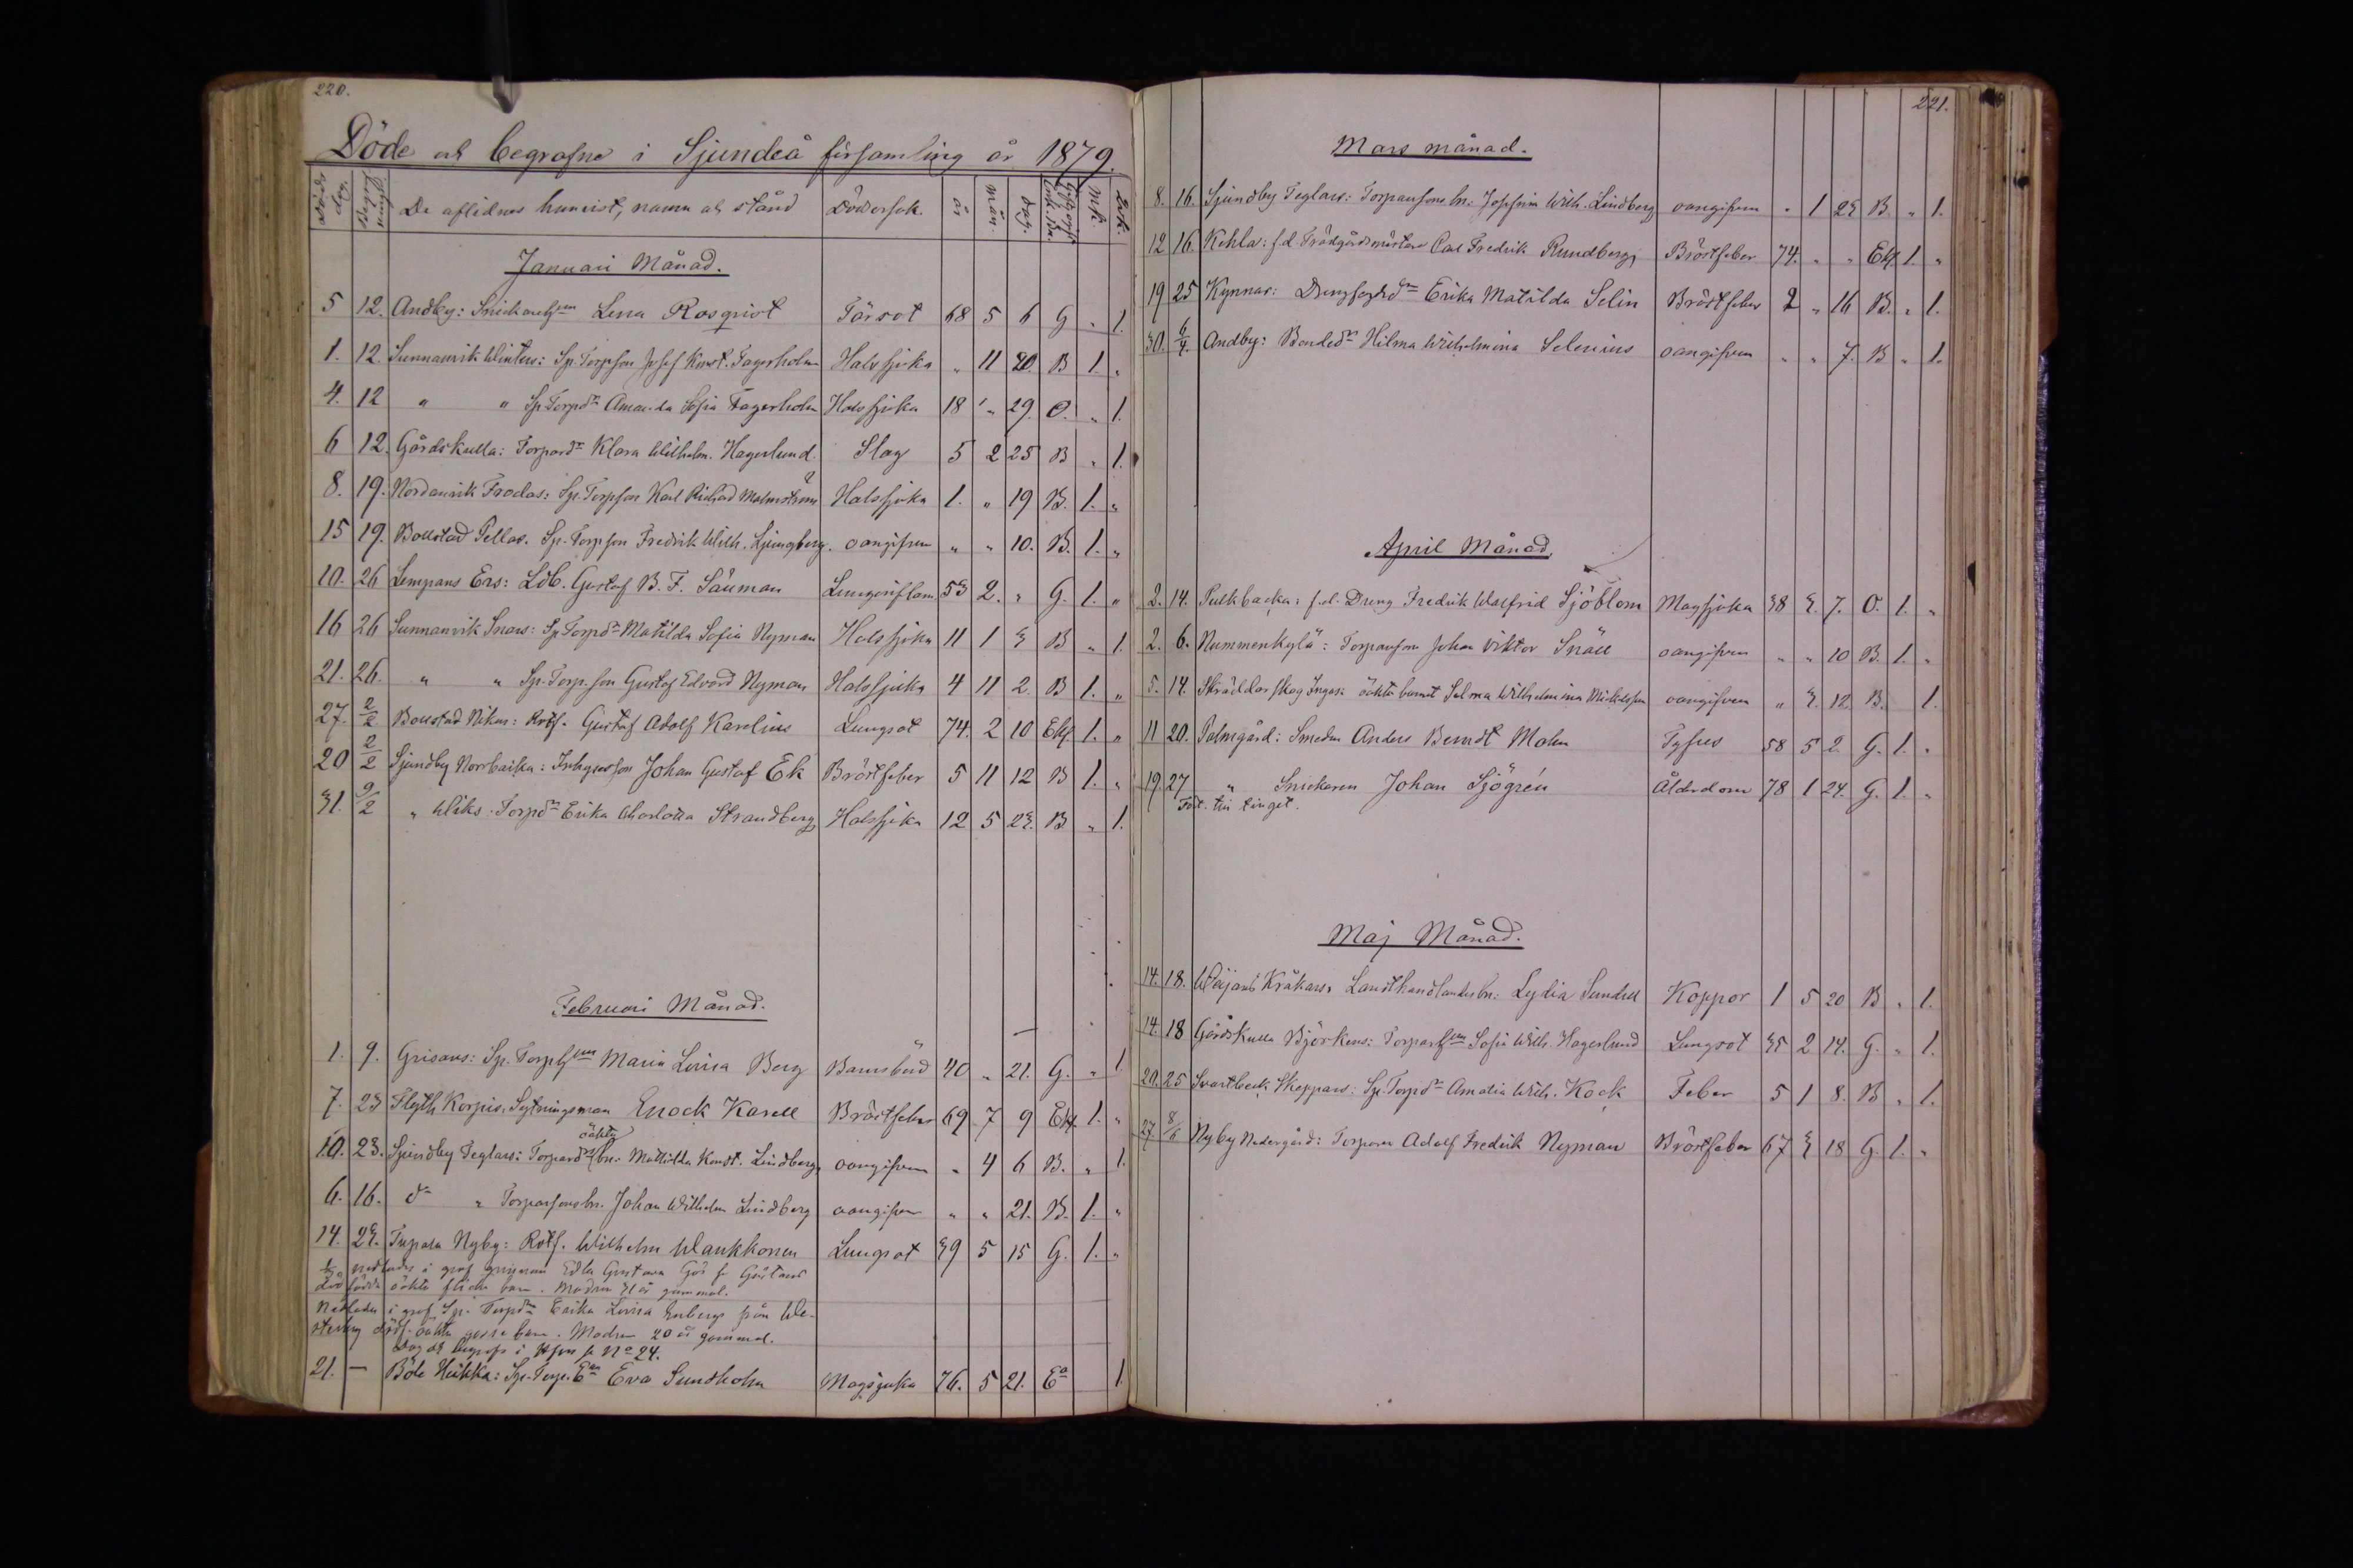 220.
Döde och begrafne i Sjundeå församling år 1879.
De aflidnes hemvist, namn och stånd Dödsorsak. år mån. dag. Mk. Qvk.
Januari Månad.
5 12. Andby: Lena Rosqvist Tärsot 68 5 6 G „ 1.
1. 12 Sunnanvik Winters: Sp. Torpson Josef Konst. Fagerholm Halssjuka „ 11 20. B 1. „
4. 12 „ „ Sp Torpdr Amanda Sofia Fagerholm Halssjuka 18 „ 29. O. „ 1.
6 12. Gårdskulla: Torpardr Klara Wilhelm. Hagerlund. Slag 5 2 25 B „ 1.
8. 19. Nordanvik Frodas: Sp. Torpson Karl Richard Malmström Halssjuka 1. „ 19 B. 1. „
15 19. Bollstad Pellas. Sp. Torpson Fredrik Wilh. Ljungberg. oangifven „ „ 10. B. 1. „
10. 26 Lempans Ers: Gustaf B. F. Säuman Lunginflam. 53 2. „ G. 1. „
16 26 Sunnanvik Snars: Sp Torpdr Matilda Sofia Nyman Halssjuka 11 1 3 B „ 1.
21. 26. „ „ Sp. Torp. son Gustaf Edvard Nyman Halssjuka 4 11 2. B 1. „
27. 2/2 Bollstad Nikus: Rotf. Gustaf Adolf Karelius Lungsot 74. 2 10 Ekl. 1. „
20 2/2 Sjundby Norrbacka: Inhyseson Johan Gustaf Ek Bröstfeber 5 11 12 B 1. „
31. 9/2 „ Wiks. Torpdr Erika Charlotta Strandberg Halssjuka 12 5 23. B „ 1.
Februari Månad.
1. 9. Grisans: Sp. Torph Maria Lovisa Berg Barnsbörd 40 „ 21. G. „ 1
7. 23 Flyth Korpis. Sytningsman Enock Karell Bröstfeber 69 7 9 Ekl. 1. „
oäkta
10. 23. Sjundby Teglars: Torpardrs bn. Mathilda Konst. Lindberg oangifven „ 4 6 B. „ 1.
6. 16. do „ Torparsons bn. Johan Wilhelm Lindberg oangifven „ „ 21. B. 1. „
14. 23. Tupala Nyby: Rotf. Wilhelm Wankkonen Lungsot 39 5 15 G. 1. „
nedlades i graf Edla Gustava
dödfödda oäkta flicko barn. Modren 31 år gammal.
Nedlades i graf Sp. Torpdr Erika Lovisa Enberg från We-
sterby dödf. oäkta gosse barn. Modren 20 år gammal.
Dog och begrofs i No 24.
21. — Böle Heikka: Sp. Torp. Ea Eva Sundholm Magsjuka 76. 5 21. Ea 1.
221.
Mars månad.
8. 16. Sjundby Teglars: Torparsons bn. Josefina Wilh. Lindberg oangifven „ 1 23 B. „ 1.
12 16. Kehla: f.d. Trädgårdsmästare Carl Fredrik Rundberg Bröstfeber 74. „ „ Ekl. 1. „
19 25 Kynnar: Erika Matilda Selin Bröstfeber 2 „ 16 B. „ 1.
30. 6/4 Andby: Bondedr Hilma Wilhelmina Selenius oangifven „ „ 7. B „ 1.
April Månad.
2. 14. Pulkbacka: f.d. Dreng Fredrik Walfrid Sjöblom Magsjuka 38 3. 7. O. 1. „
2. 6. Nummenkylä: Torparson Johan Viktor Snäll oangifven „ „ 10 B. 1. „
5. 14. Skräddarskog Ingers oäkta barnet Selma Wilhelmina Mickelsson oangifven „ 3. 12. B. 1.
11 20. Palmgård: Smeden Anders Berndt Malm Tyfus 58 5 2. G. 1. „
19. 27 „ Snickaren Johan Sjögrén Ålderdom 78 1 24. G. 1. „
Fört. till tinget.
Maj Månad.
14. 18. Wäjans Kråkars Landthandlandes bn. Lydia Sundell Koppor 1 5 20 B „ 1.
14. 18 Gårdskulla Björkens: Torparh Sofia Wilh. Hagerlund Lungsot 35 2 14. G. „ 1.
20. 25 Svartbeck Skeppars: Sp. Torpdr Amalia Wilh. Kock Feber 5 1 8. B „ 1.
27. 8/6 Nyby Nedergård: Torparen Adolf Fredrik Nyman Bröstfeber 67 3 18 G. 1. „